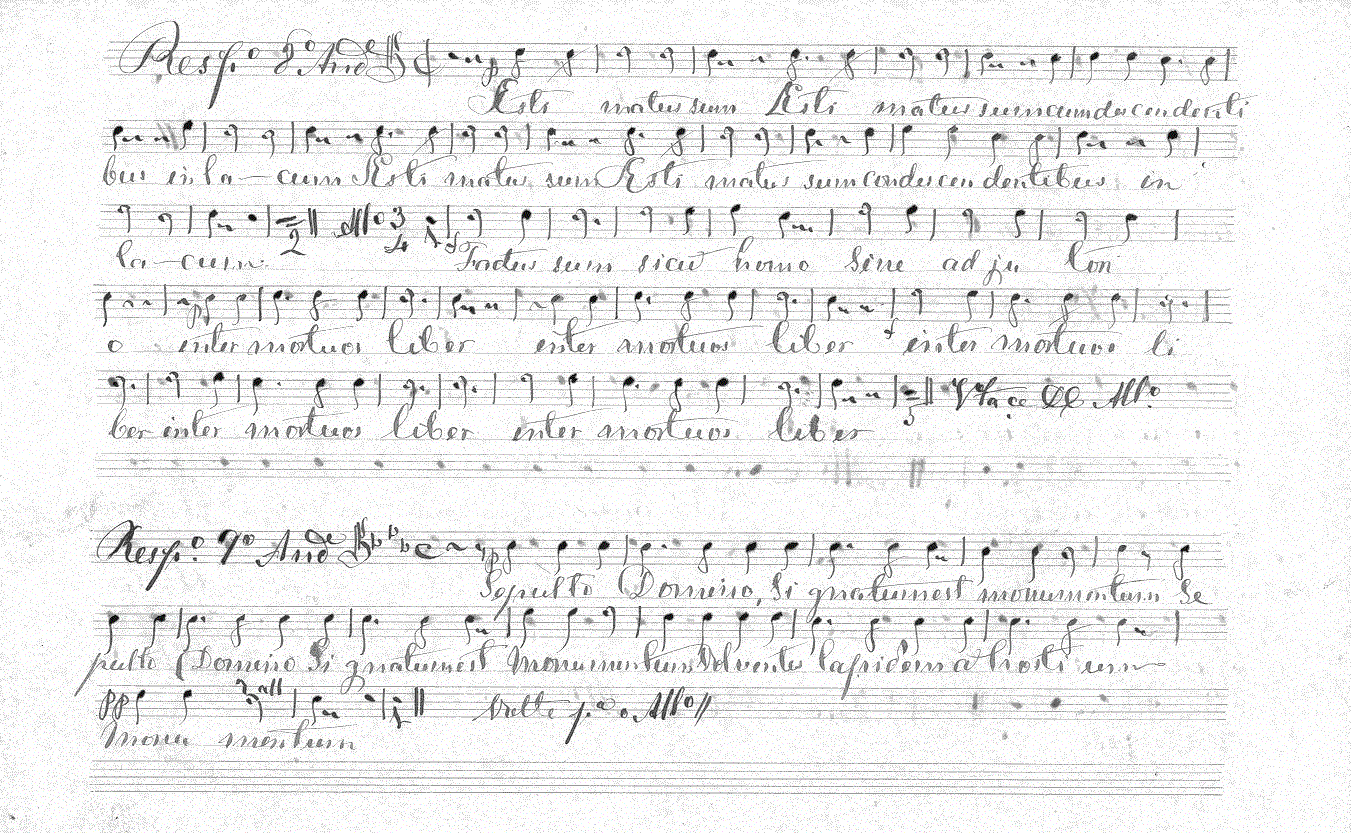 Resp.o 8o And.e
Esti matus sum Esti matus sum cum descendenti
bus in la-cum Esti matus sum Esti matus sum condescendentibus in
la-cum. 2 All.o 3/4
Factus sum sicut homo Sine adju ton
o inter mortuos liber inter mortuos liber inter mortuos li
ber inter mortuos liber inter mortuos liber
All.o
Resp.o 9o And.e
Sepulto Domino, Si gnatum est monumentum Se
pulto Domino Si gnatum est Monumentum Volventes lapidem a hosti um
pp
Monu mentum
All.o